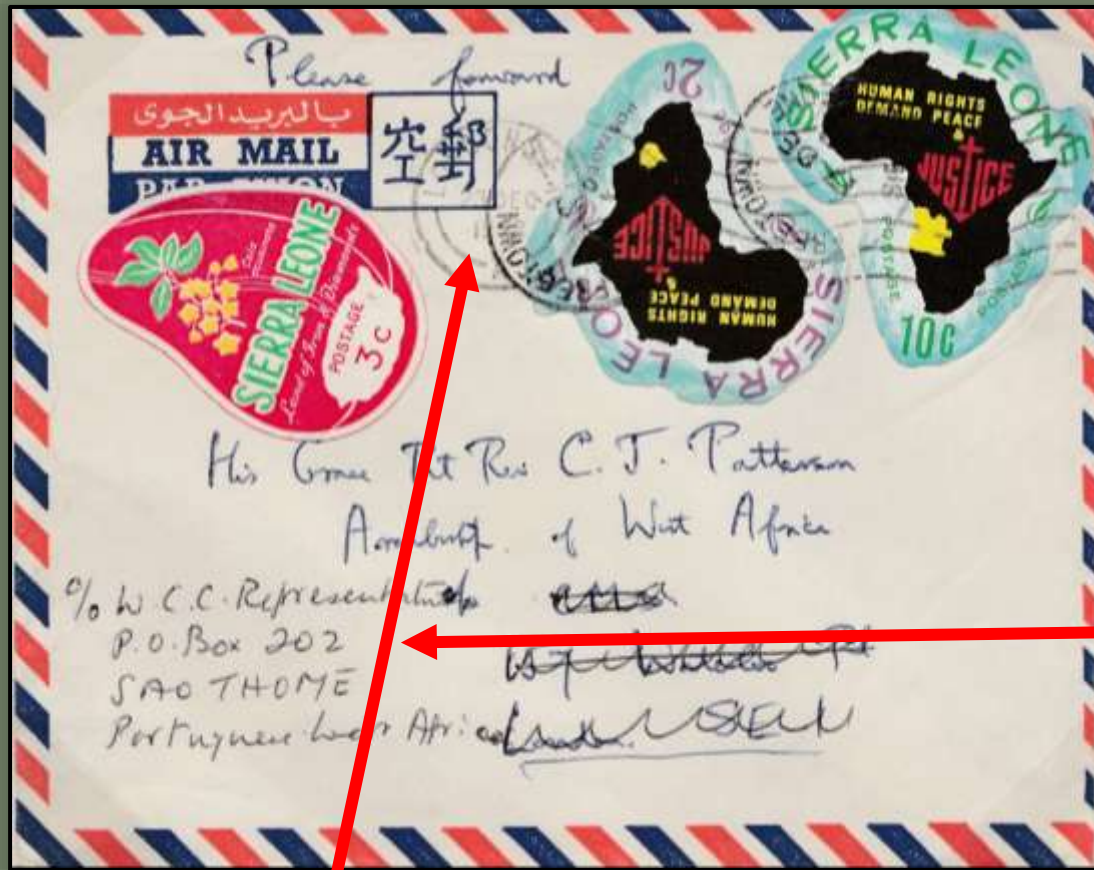 Please forward
بالبريد الجوى
AIR MAIL
PAR AVION
空郵
SIERRA LEONE
Land of Iron & Diamonds
POSTAGE
3c
2c
POSTAGE
SIERRA LEONE
HUMAN RIGHTS
DEMAND PEACE
&
JUSTICE
SIERRA LEONE
HUMAN RIGHTS
DEMAND PEACE
&
JUSTICE
POSTAGE
10c
FREETOWN
His Grace Rt Rev C. J. Patterson
Archbishop of West Africa
c/o W.C.C. Representative
P.O. Box 202
SAO THOME
Portuguese West Africa
London